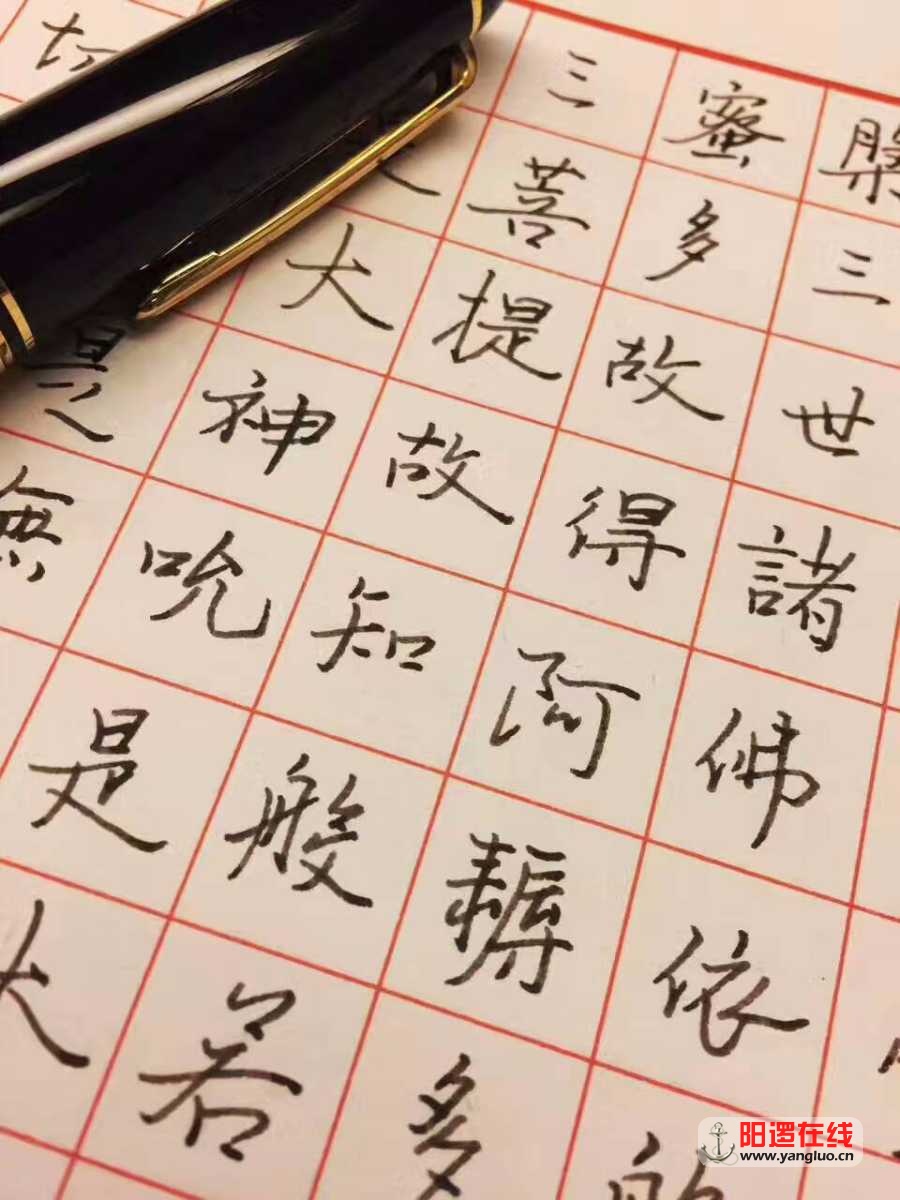 槃三世諸佛依般
蜜多故得阿耨多
三菩提故知般若
大神呪是大
是無
切
阳逻在线
www.yangluo.cn